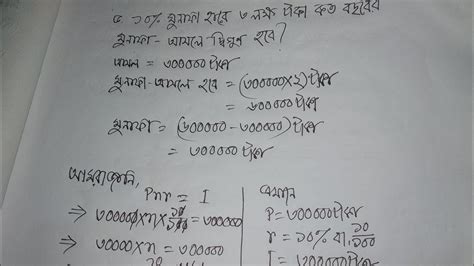 ১০% মুনাফা হারে ৩ লক্ষ টাকা কত বছরের
মুনাফা-আসলে দ্বিগুণ হবে?
আসল = ৩০০০০০ টাকা
মুনাফা-আসলে হবে = (৩০০০০০×২) টাকা
= ৬০০০০০ টাকা
মুনাফা = (৬০০০০০ - ৩০০০০০) টাকা
= ৩০০০০০ টাকা
আমরা জানি,
Pnr = I
⇒ ৩০০০০০×n×১০/১০০ = ৩০০০০০
⇒ ৩০০০০×n = ৩০০০০০
১০
এখানে
P = ৩০০০০০ টাকা
r = ১০% বা, ১০/১০০
I = ৩০০০০০ টাকা